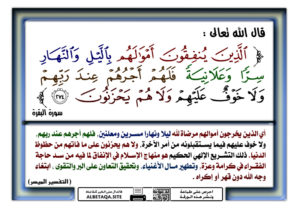 قال الله تعالى :
﴿ الَّذِينَ يُنفِقُونَ أَمْوَالَهُم بِاللَّيْلِ وَالنَّهَارِ
سِرًّا وَعَلَانِيَةً فَلَهُمْ أَجْرُهُمْ عِندَ رَبِّهِمْ
وَلَا خَوْفٌ عَلَيْهِمْ وَلَا هُمْ يَحْزَنُونَ ﴿٢٧٤﴾
سورة البقرة
أي الذين يخرجون أموالهم مرضاة لله ليلا ونهارا مسرين ومعلنين، فلهم أجرهم عند ربهم،
ولا خوف عليهم فيما يستقبلونه من أمر الآخرة، ولا هم يحزنون على ما فاتهم من حظوظ
الدنيا. ذلك التشريع الإلهي الحكيم هو منهاج الإسلام في الإنفاق لما فيه من سد حاجة
الفقراء في كرامة وعزة، وتطهير مال الأغنياء، وتحقيق التعاون على البر والتقوى، ابتغاء
وجه الله دون قهر أو إكراه.
( التفسير الميسر )
ALBETAQA.SITE